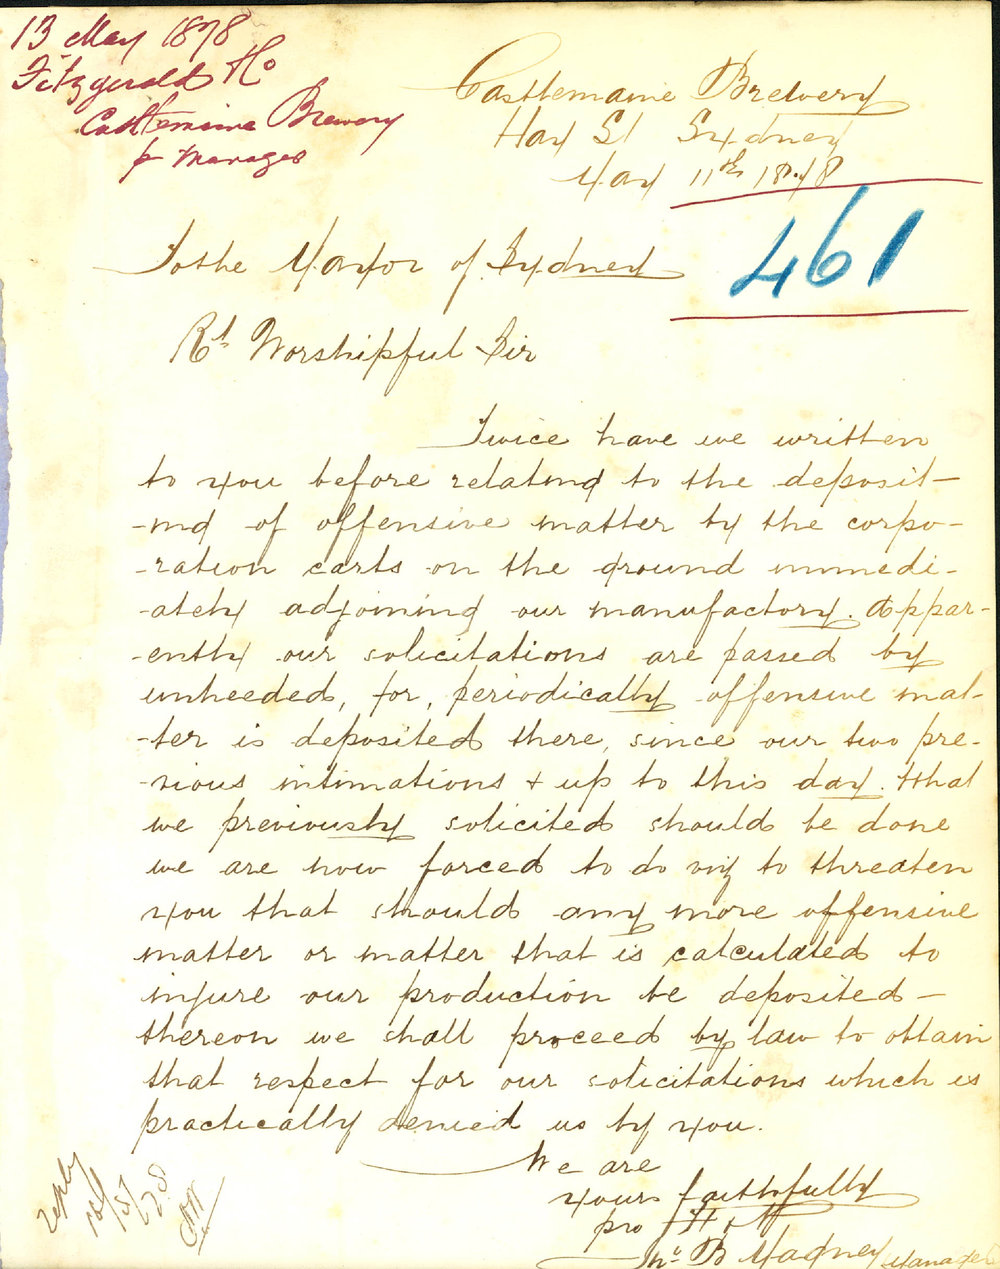 13 May 1878
Fitzgerald
Castlemaine Brewery
p Manager
Castlemaine Brewery
Hay St Sydney
May 11th 1878
461
To the Mayor of Sydney
Rt Worshipful Sir
Twice have we written
to you before relating to the deposit-
-ing of offensive matter by the corpo-
-ration carts on the ground immedi-
-ately adjoining our manufactory. Appar-
-ently our solicitations are passed by
unheeded, for, periodically offensive mat-
-ter is deposited there, since our two pre-
-vious intimations & up to this day. That
we previously solicited should be done
we are now forced to do viz to threaten
you that should any more offensive
matter or matter that is calculated to
injure our production be deposited -
thereon we shall proceed by law to obtain
that respect for our solicitations which is
practically denied us by you.
We are
yours faithfully
pro
B Manager
reply